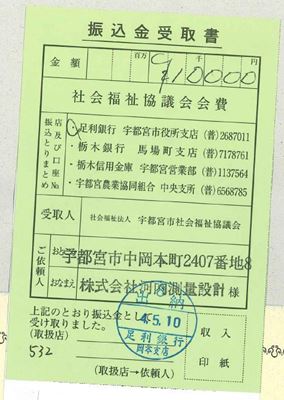 振込金受取書
金額 百万 千 円
¥10000
社会福祉協議会会費
振込とりまとめ店及び口座No.
足利銀行 宇都宮市役所支店 (普)2687011
・栃木銀行 馬場町支店 (普)7178761
・栃木信用金庫 宇都宮営業部 (普)1137564
・宇都宮農業協同組合 中央支所 (普)6568785
受取人 社会福祉法人 宇都宮市社会福祉協議会
ご依頼人
おところ 宇都宮市中岡本町2407番地8
おなまえ 株式会社河内測量設計 様
上記のとおり振込金として
受け取りました。
(取扱店)
532
出納
4.5.10
足利銀行
岡本支店
収入
印紙
(取扱店→依頼人)